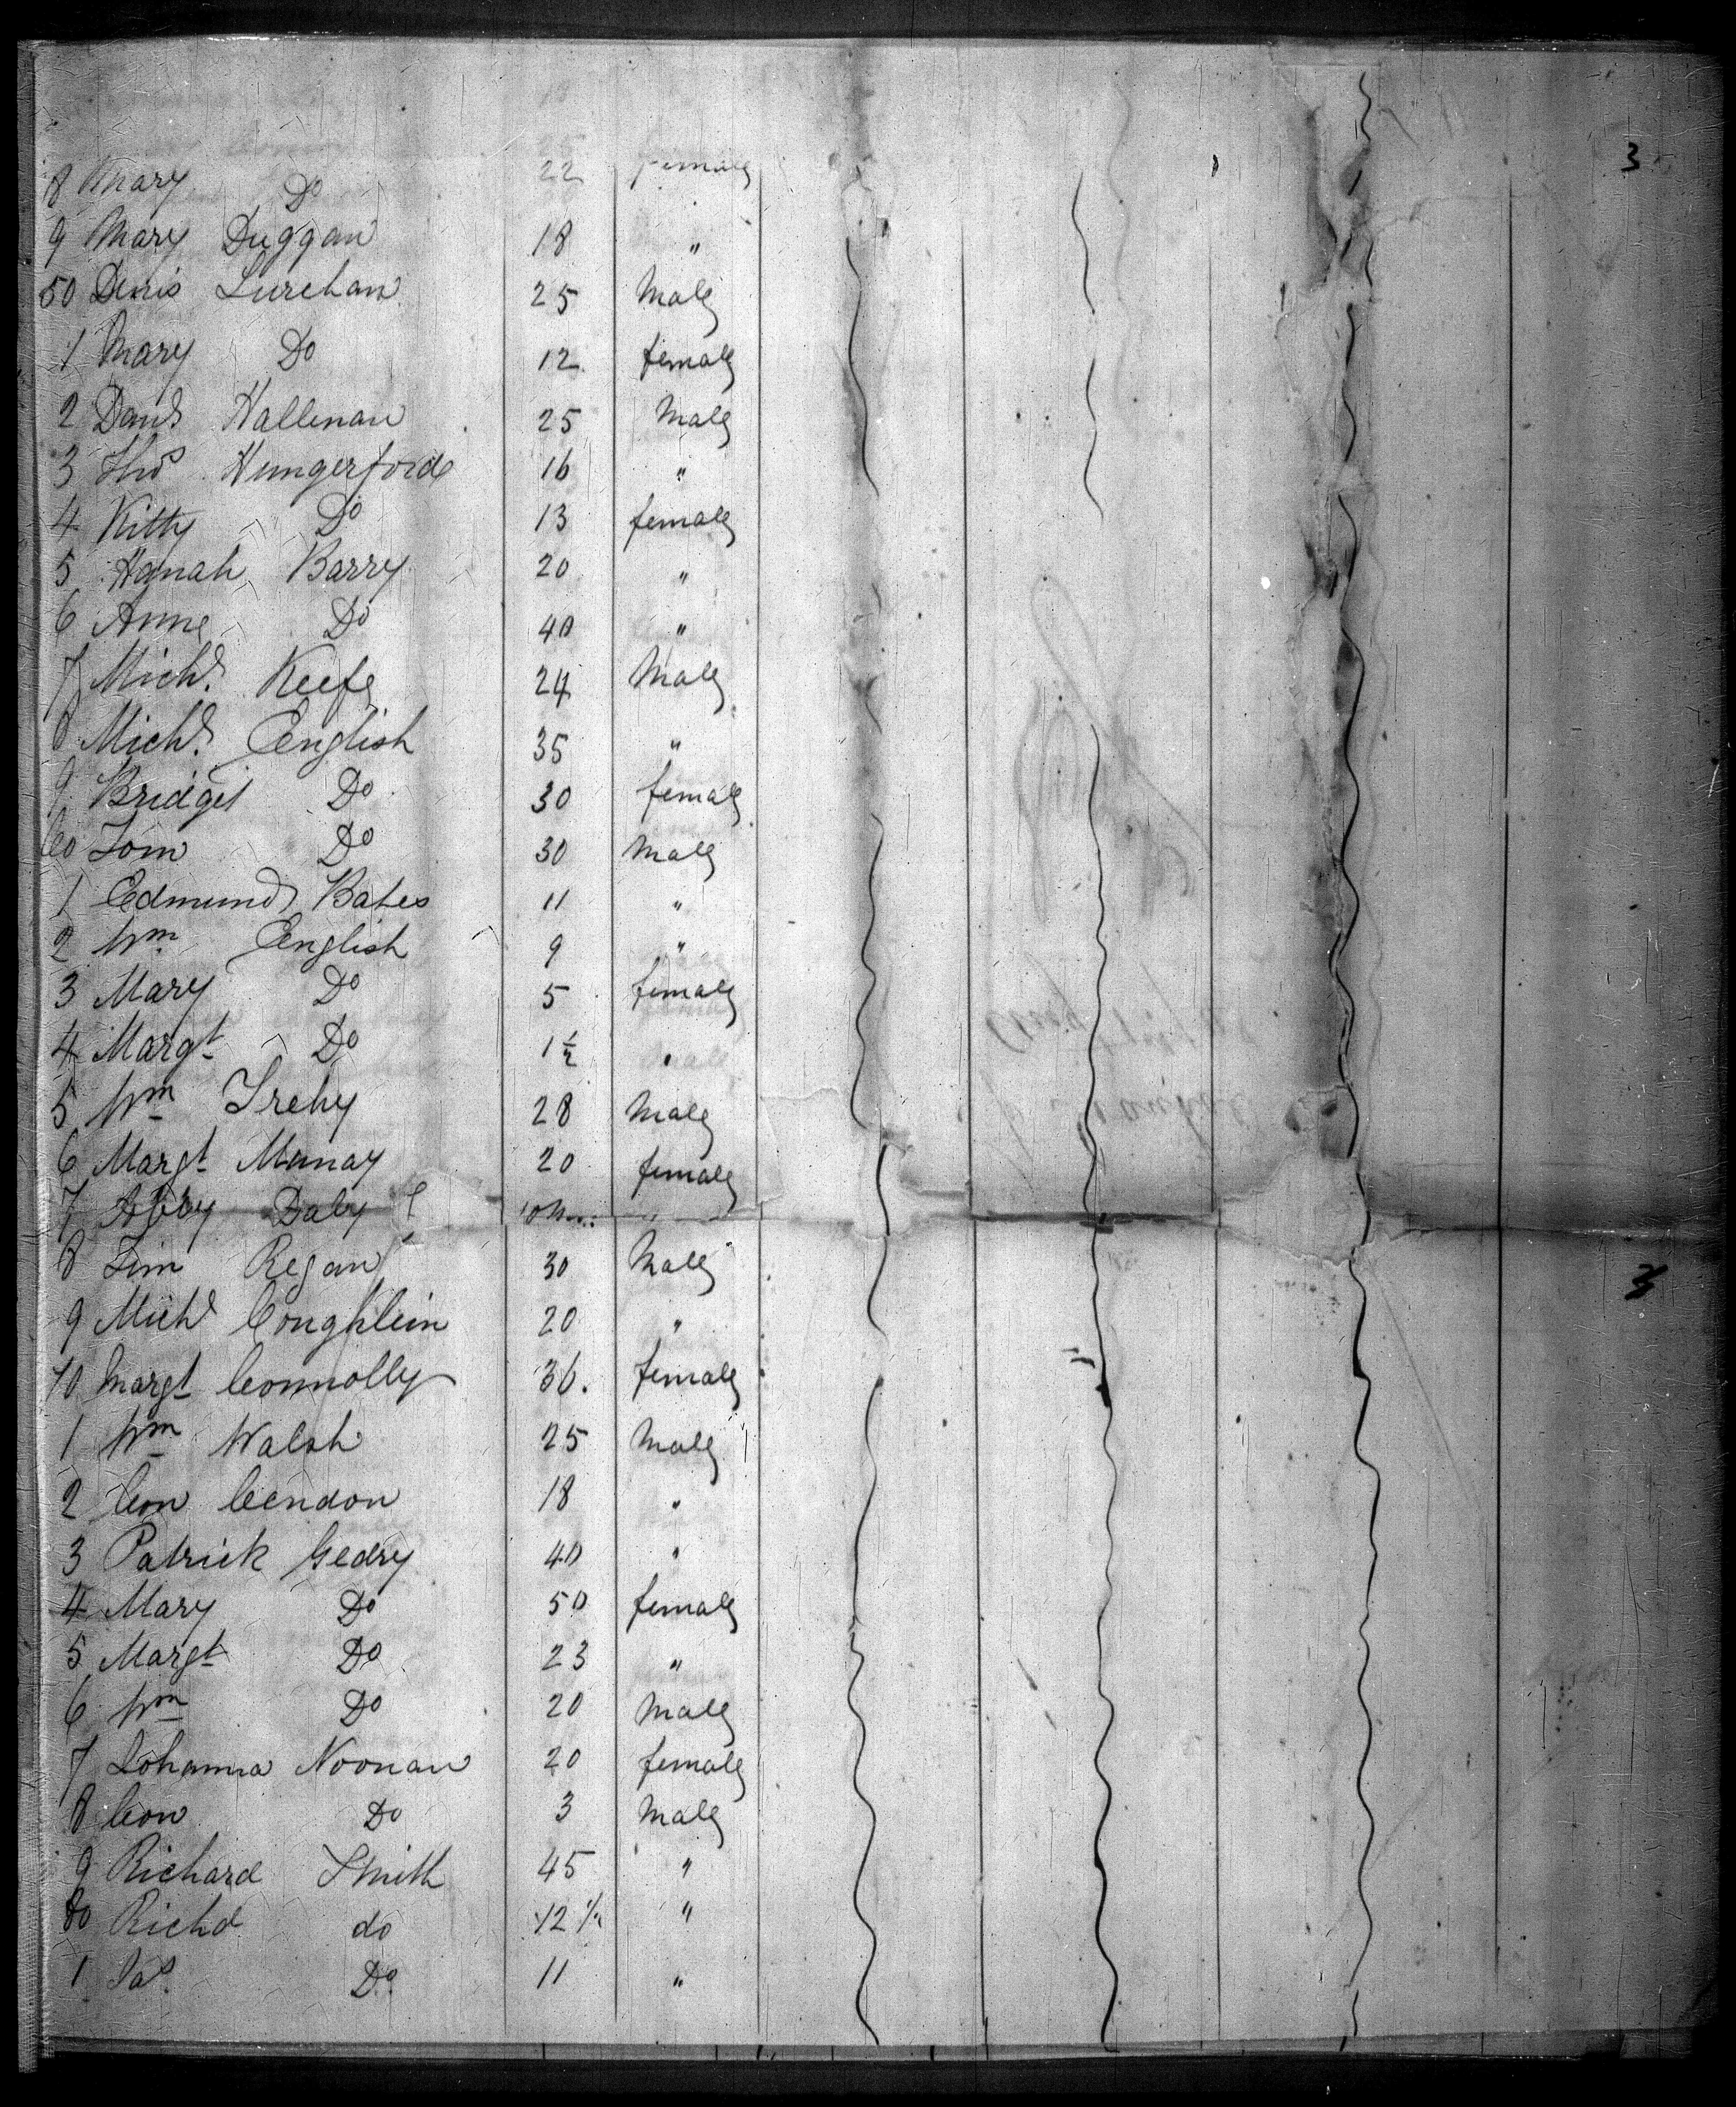 3
8 Mary Do 22 female
9 Mary Duggan 18 "
50 Denis Lurehan 25 Male
1 Mary Do 12 female
2 Danl Hallenan 25 Male
3 Thos Hungerford 16 "
4 Kitty Do 13 female
5 Hanah Barry 20 "
6 Anne Do 40 "
7 Michl. Keefe 24 Male
8 Michl. English 35 "
9 Bridget Do 30 female
60 Tom Do 30 Male
1 Edmund Bates 11 "
2 Wm English 9 "
3 Mary Do 5 female
4 Margt Do 1½ "
5 Wm Trehy 28 Male
6 Margt Munay 20 female
7 Abby Daly 10 "
8 Tim Regan 30 Male
9 Michl Coughlein 20 "
70 Margt Connolly 36. female
1 Wm Walsh 25 Male
2 Con Condon 18 "
3 Patrick Gedry 40 "
4 Mary Do 50 female
5 Margt Do 23 "
6 Wm Do 20 Male
7 Johanna Noonan 20 female
8 Con Do 3 Male
9 Richard Smith 45 "
80 Richd do 12 "
1 Jas. Do 11 "